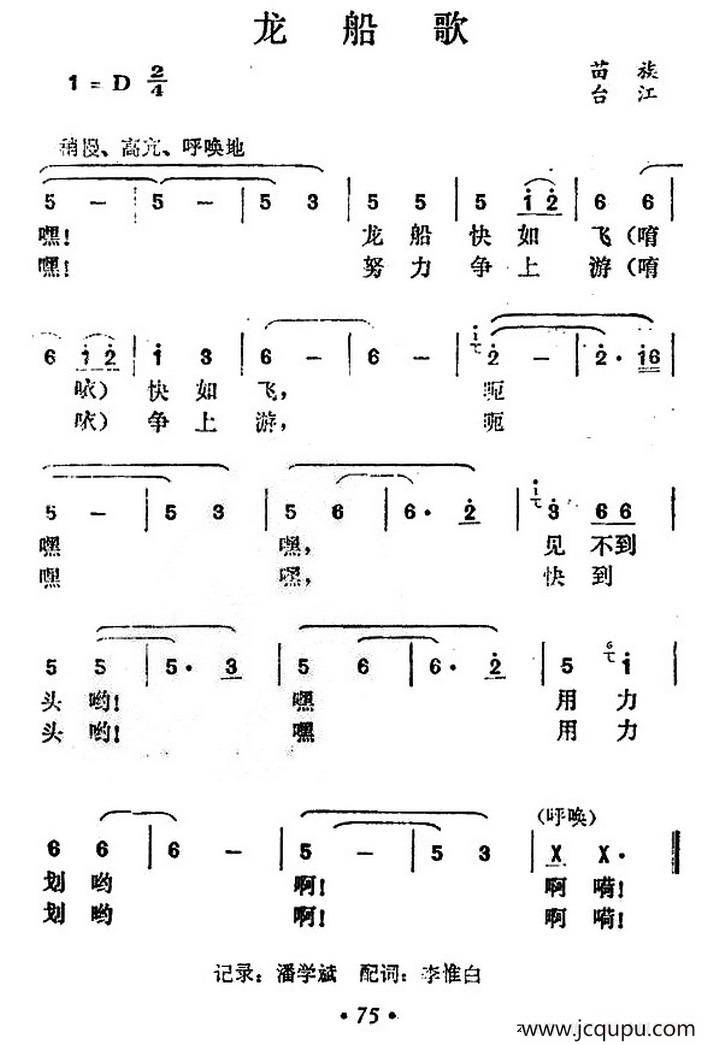 龙 船 歌
1 = D 2/4
苗 族
台 江
稍慢、高亢、呼唤地
5 – | 5 – | 5 3 | 5 5 | 5 1̇ 2̇ | 6 6 |
嘿! 龙 船 快 如 飞(唷
嘿! 努 力 争 上 游(唷
6 1̇ 2̇ | 1̇ 3 | 6 – | 6 – | i 2̇ – | 2̇· 1̇6 |
吹) 快 如 飞, 呃
吹) 争 上 游, 呃
5 – | 5 3 | 5 6 | 6· 2̇ | i 3̇ 6 6 |
嘿 嘿, 见 不 到
嘿 嘿, 快 到
5 5 | 5· 3̇ | 5 6 | 6· 2̇ | 5 6 1̇ |
头 哟! 嘿 用 力
头 哟! 嘿 用 力
(呼唤)
6 6 | 6 – | 5 – | 5 3 | X X·
划 哟 啊! 啊 嗬!
划 哟 啊! 啊 嗬!
记录: 潘学斌 配词: 李惟白
· 75 ·
www.jcqupu.com